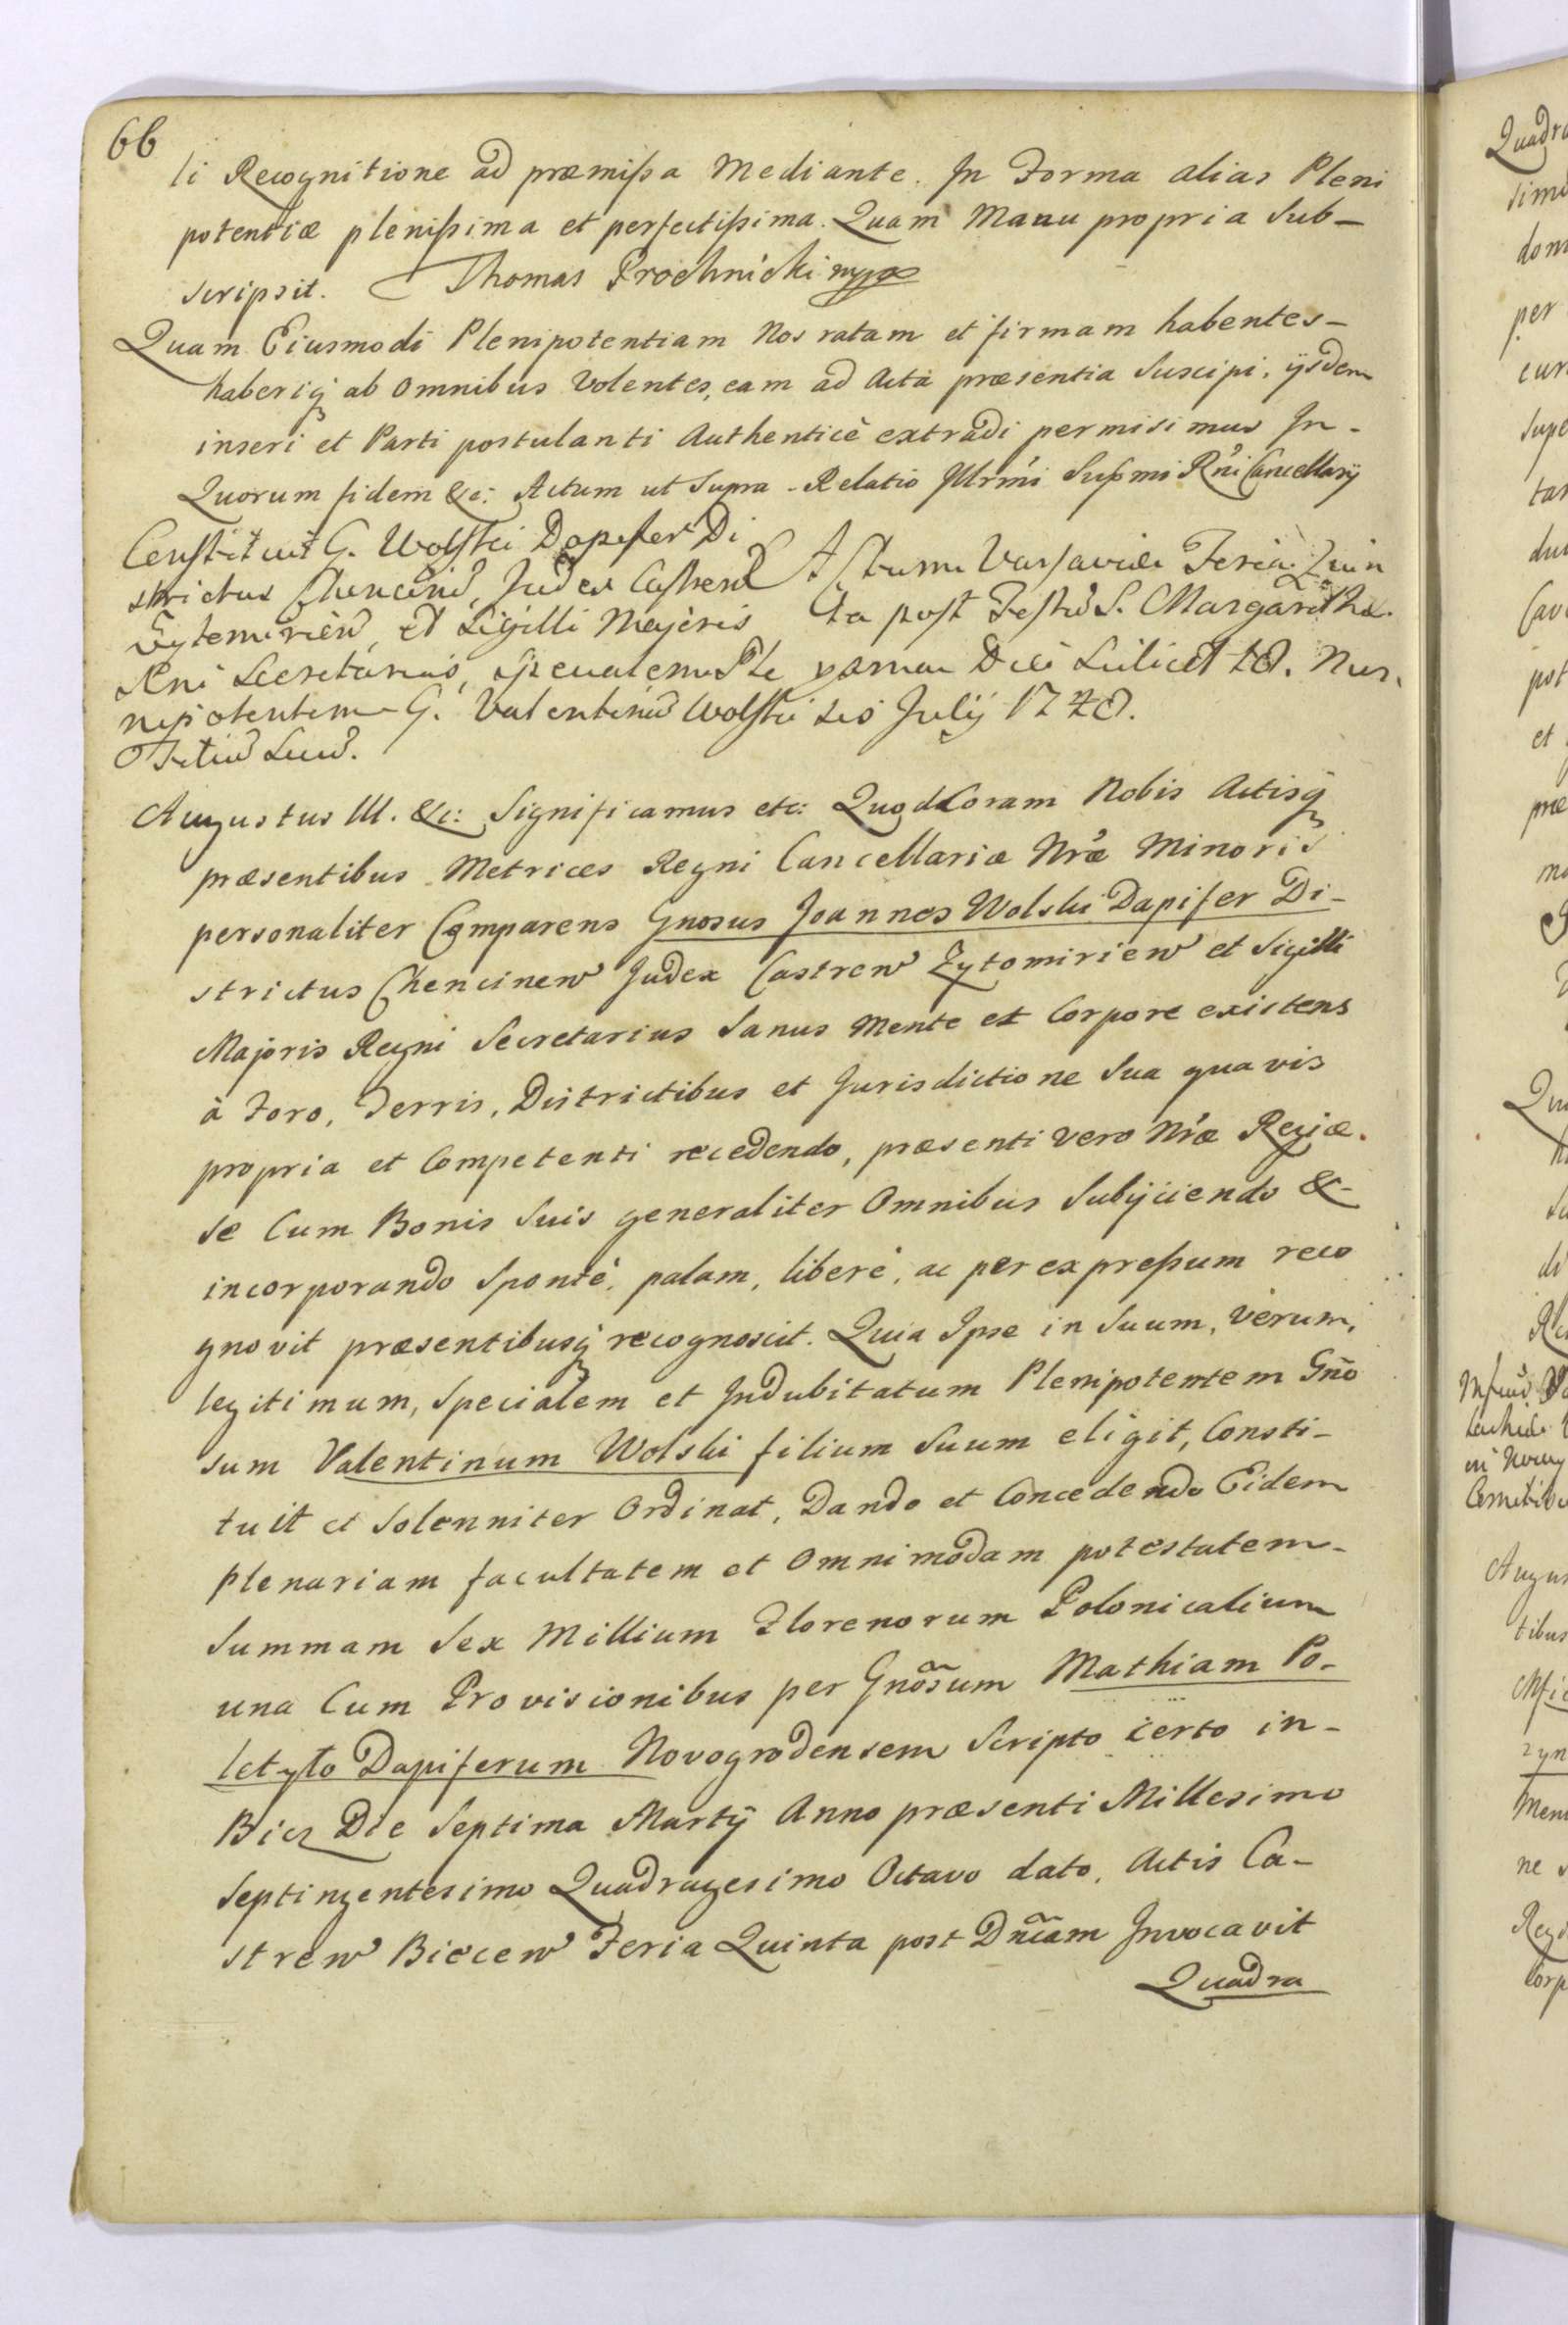 66
li Recognitione ad præmißa Mediante. In Forma alias Pleni
potentiæ plenißima et perfectißima. Quam Manu propria Sub-
scripsit. Thomas Prochnicki mpp
Quam Eiusmodi Plenipotentiam Nos ratam et firmam habentes-
haberiq ab omnibus Volentes, eam ad Acta præsentia Suscipi, ijsdem
inseri et Parti postulanti Authenticè extradi permisimus In-
Quorum fidem &c: Actum ut Supra - Relatio Illrmi Supmi Rni Cancellarij
Constituit G. Wolski Dapifer Di
strictus Chencine, Judex Castren
Zytomirien, et Sigilli Majoris
Rni Secretarius, specialem Ple
nipotentem G. Valentinu Wolski
Filiu Suu.
Actum Varsaviæ Feria Quin
ta post Festu S. Margarithæ
prma Die Scilicet 18. Men
sis Julij 1748.
Augustus III. &c: Significamus etc: Quod Coram Nobis Actisq
præsentibus Metrices Regni Cancellariæ Nræ Minoris
personaliter Comparens Gnosus Joannes Wolski Dapifer Di-
strictus Chencinen Judex Castren Zytomirien et Sigilli
Majoris Regni Secretarius Sanus Mente et Corpore existens
à Foro, Terris, Districtibus et Jurisdictione Sua quavis
propria et Competenti recedendo, præsenti vero Nræ Regiæ.
se Cum Bonis Suis generaliter Omnibus Subijciendo &
incorporando Sponté, palam, liberé, ac per expreßum reco
gnovit præsentibusq recognoscit. Quia Ipse in Suum, Verum,
legitimum, Specialem et Indubitatum Plenipotentem Gno
sum Valentinum Wolski filium Suum eligit, Consti-
tuit et Solenniter Ordinat, Dando et Concedendo Eidem
plenariam facultatem et Omnimodam potestatem-
Summam Sex Millium Florenorum Polonicalium
una Cum Provisionibus per Gnosum Mathiam Po-
letyło Dapiferum Novogrodensem Scripto certo in-
Biez Die Septima Martij Anno præsenti Millesimo
Septingentesimo Quadragesimo Octavo dato, Actis Ca-
stren Biecen Feria Quinta post Dncam Invocavit
Quadra